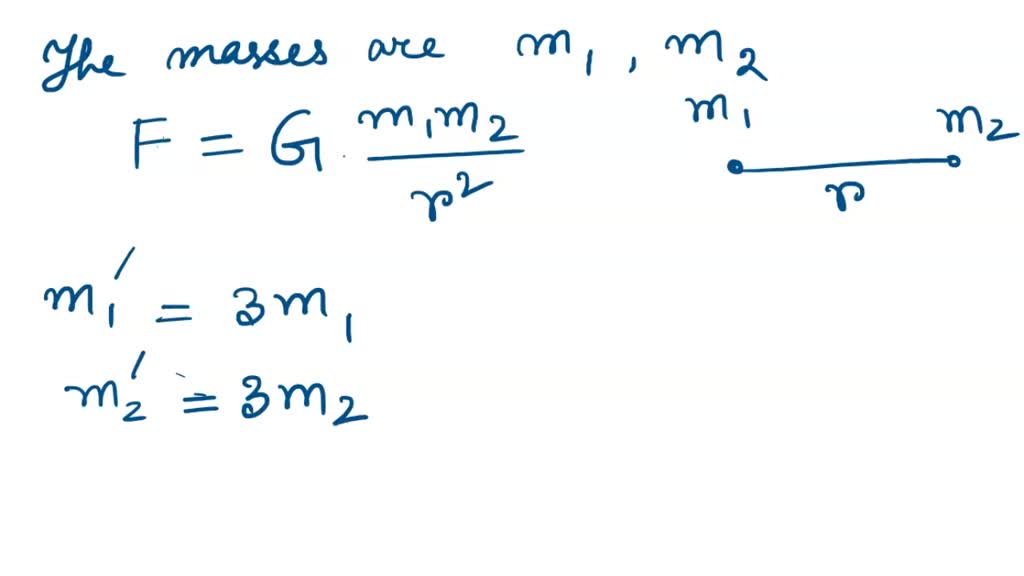 The masses are m₁, m₂
F = G · m₁m₂ / r²
m₁ m₂
r
m₁′ = 3m₁
m₂′ = 3m₂